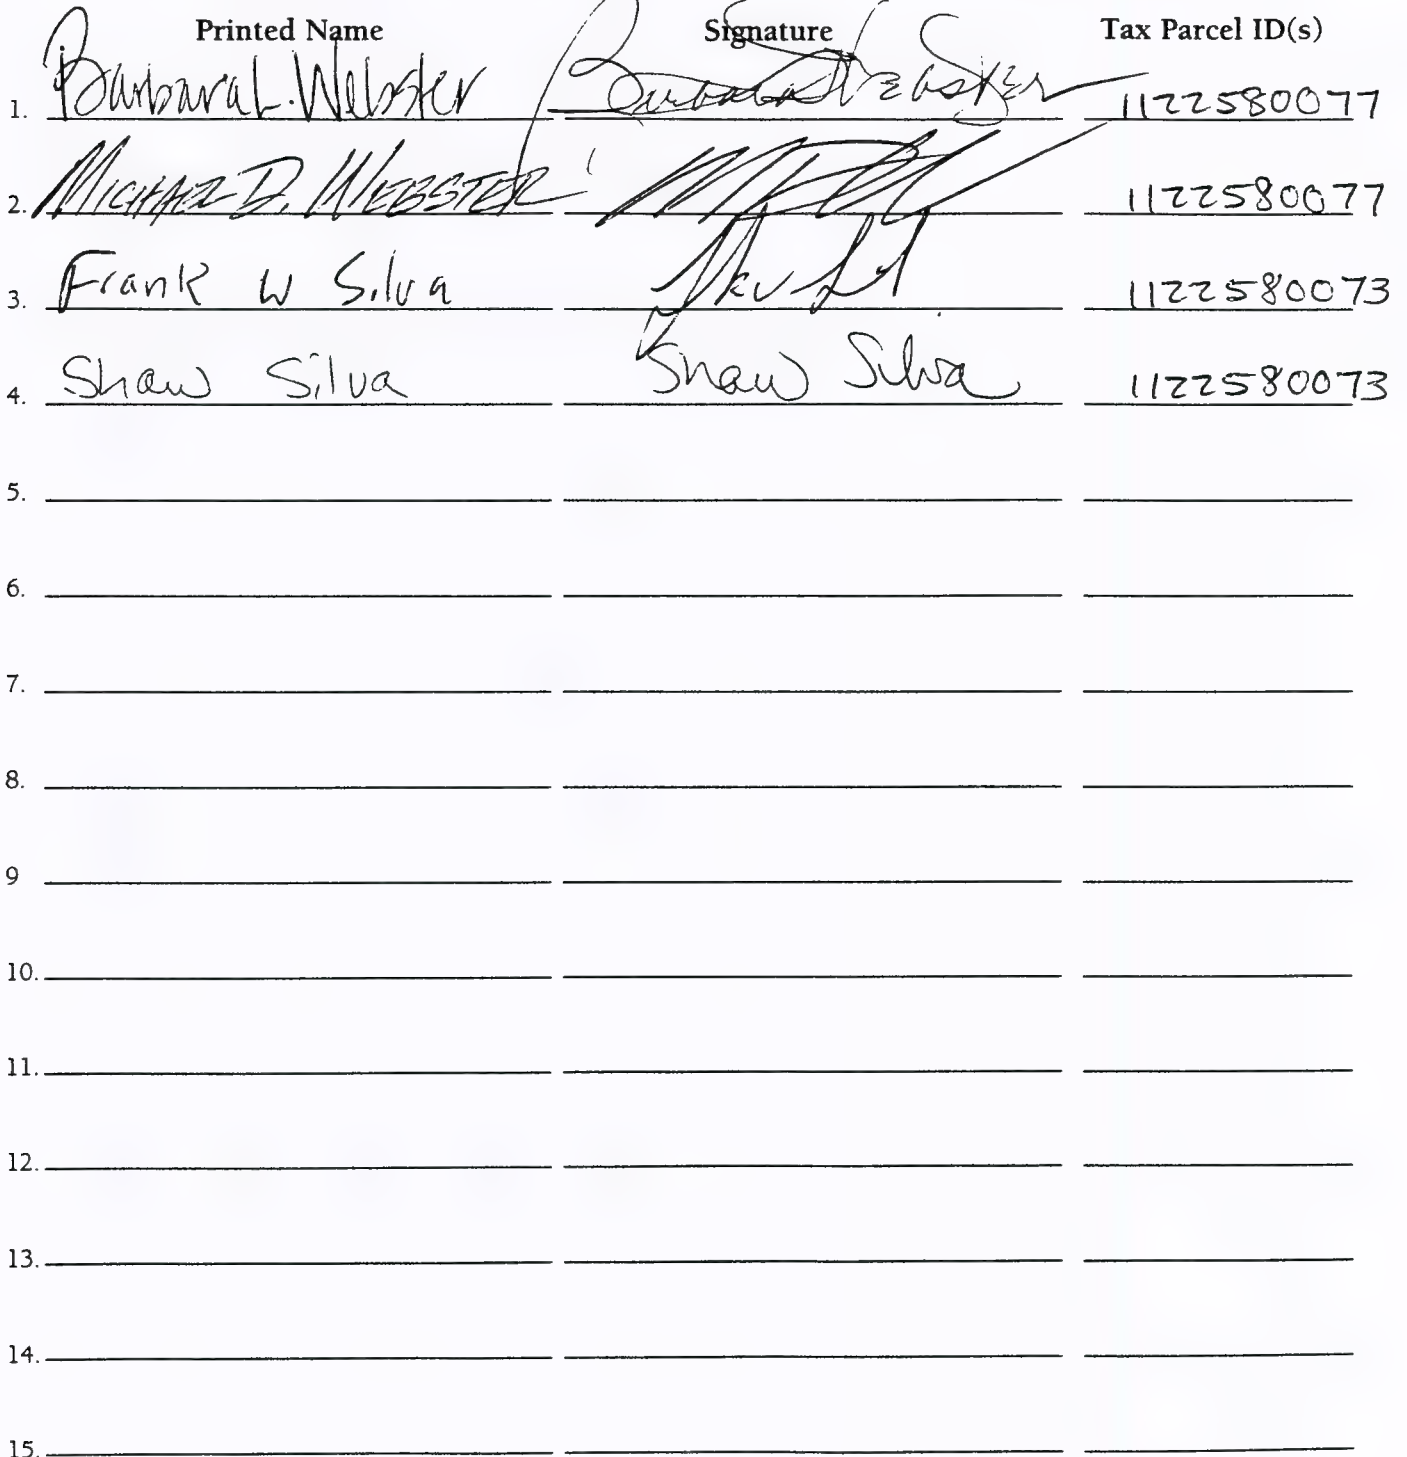 Printed Name Signature Tax Parcel ID(s)
1. Barbara L. Webster 1122580077
2. MICHAEL D. WEBSTER 1122580077
3. Frank W Silva 1122580073
4. Shaw Silva Shaw Silva 1122580073
5.
6.
7.
8.
9
10.
11.
12.
13.
14.
15.